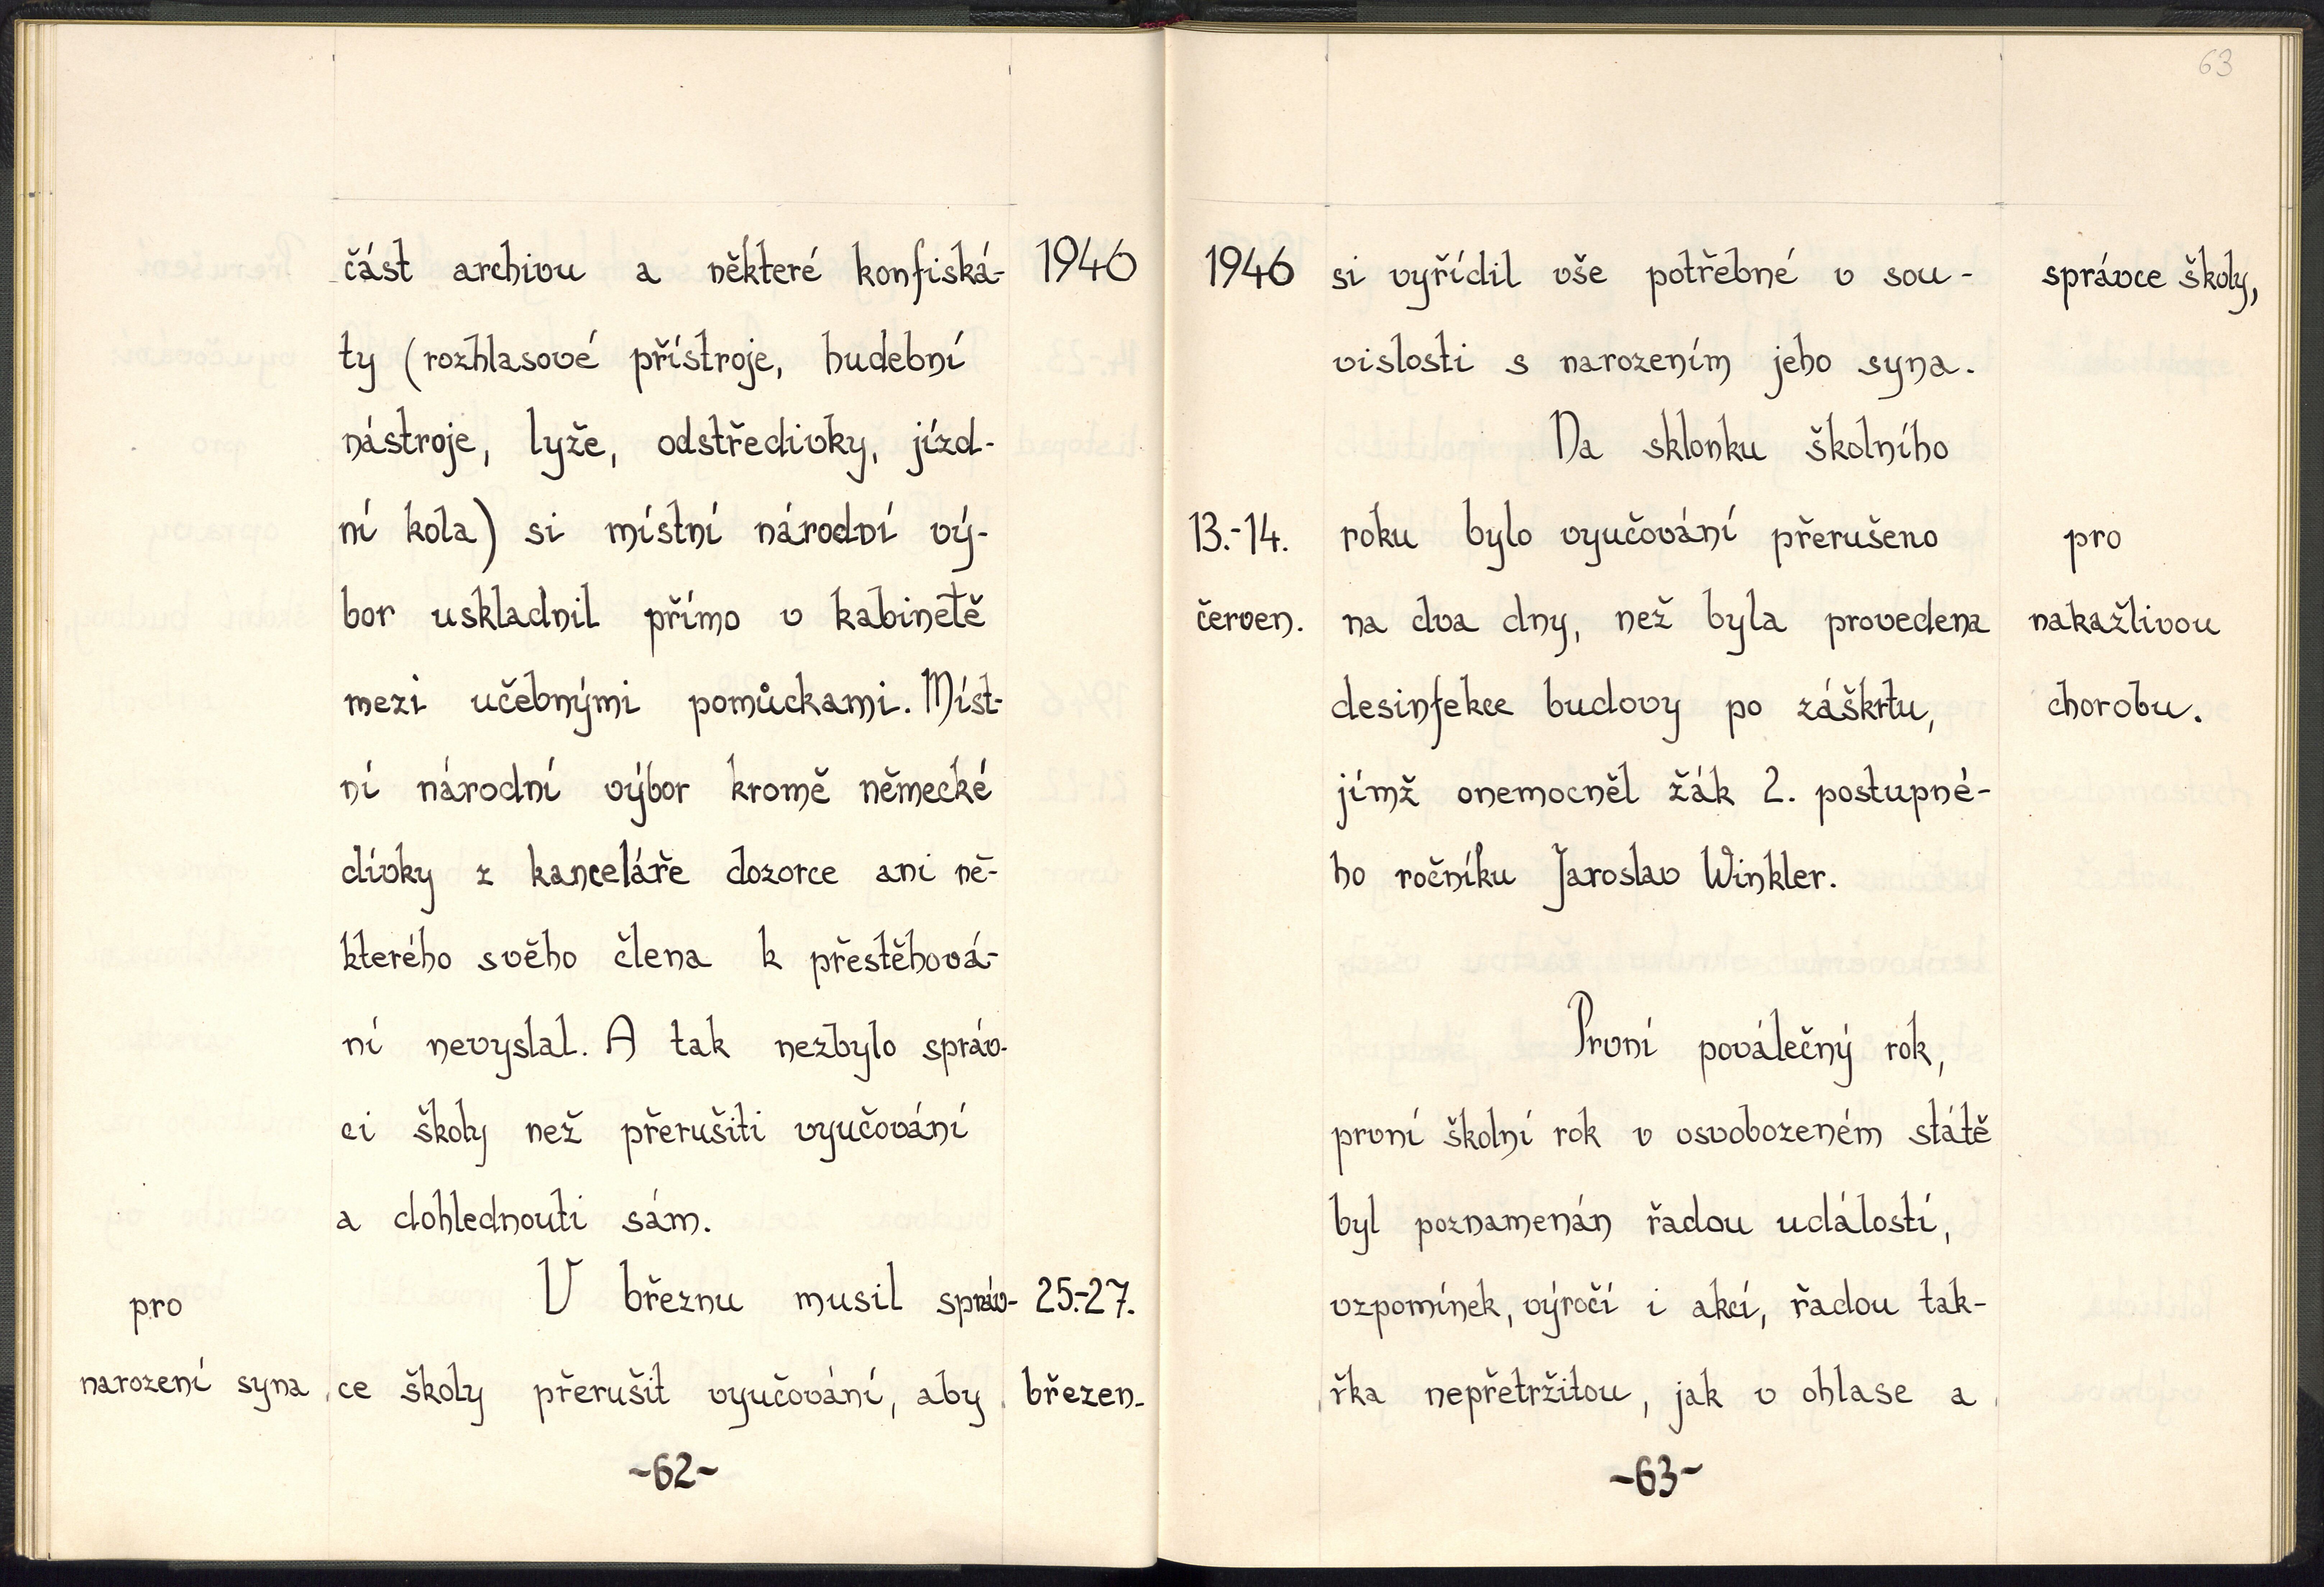 část archivu a některé konfiská- 1946
ty (rozhlasové přístroje, hudební
nástroje, lyže, odstředivky, jízd-
ní kola) si místní národní vý-
bor uskladnil přímo v kabinetě
mezi učebnými pomůckami. Míst-
ní národní výbor kromě německé
dívky z kanceláře dozorce ani ně-
kterého svého člena k přestěhová-
ní nevyslal. A tak nezbylo správ-
ci školy než přerušiti vyučování
a dohlednouti sám.
pro V březnu musil správ- 25.-27.
narození syna ce školy přerušit vyučování, aby březen.
-62-
63
1946 si vyřídil vše potřebné v sou- správce školy,
vislosti s narozením jeho syna.
Na sklonku školního
13.-14. roku bylo vyučování přerušeno pro
červen. na dva dny, než byla provedena nakažlivou
desinfekce budovy po záškrtu, chorobu.
jímž onemocněl žák 2. postupné-
ho ročníku Jaroslav Winkler.
První poválečný rok,
první školní rok v osvobozeném státě
byl poznamenán řadou událostí,
vzpomínek, výročí i akcí, řadou tak-
řka nepřetržitou, jak v ohlase a
-63-